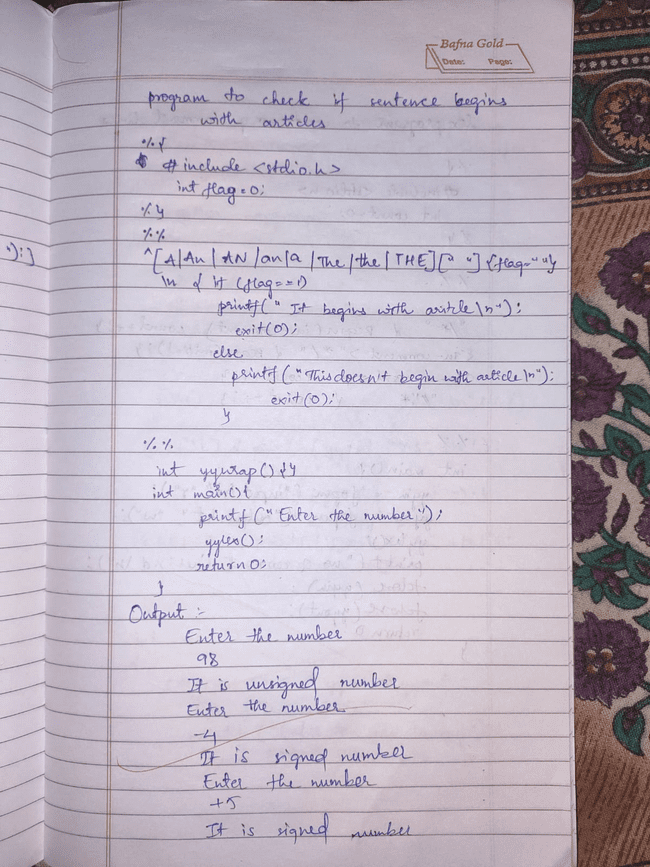 Bafna Gold
Date: Page:
program to check if sentence begins
with articles
%{
# include <stdio.h>
int flag=0;
%}
%%
^[A|An|AN|an|a|The|the|THE][" "] {flag=""}
\n { if (flag==1)
printf(" It begins with aritcle \n");
exit(0);
else
printf("This doesn't begin with article \n");
exit(0);
}
%%
int yywrap(){}
int main(){
printf("Enter the number");
yylex();
return 0;
}
Output :-
Enter the number
98
It is unsigned number
Enter the number
-4
It is signed number
Enter the number
+5
It is signed number
");}